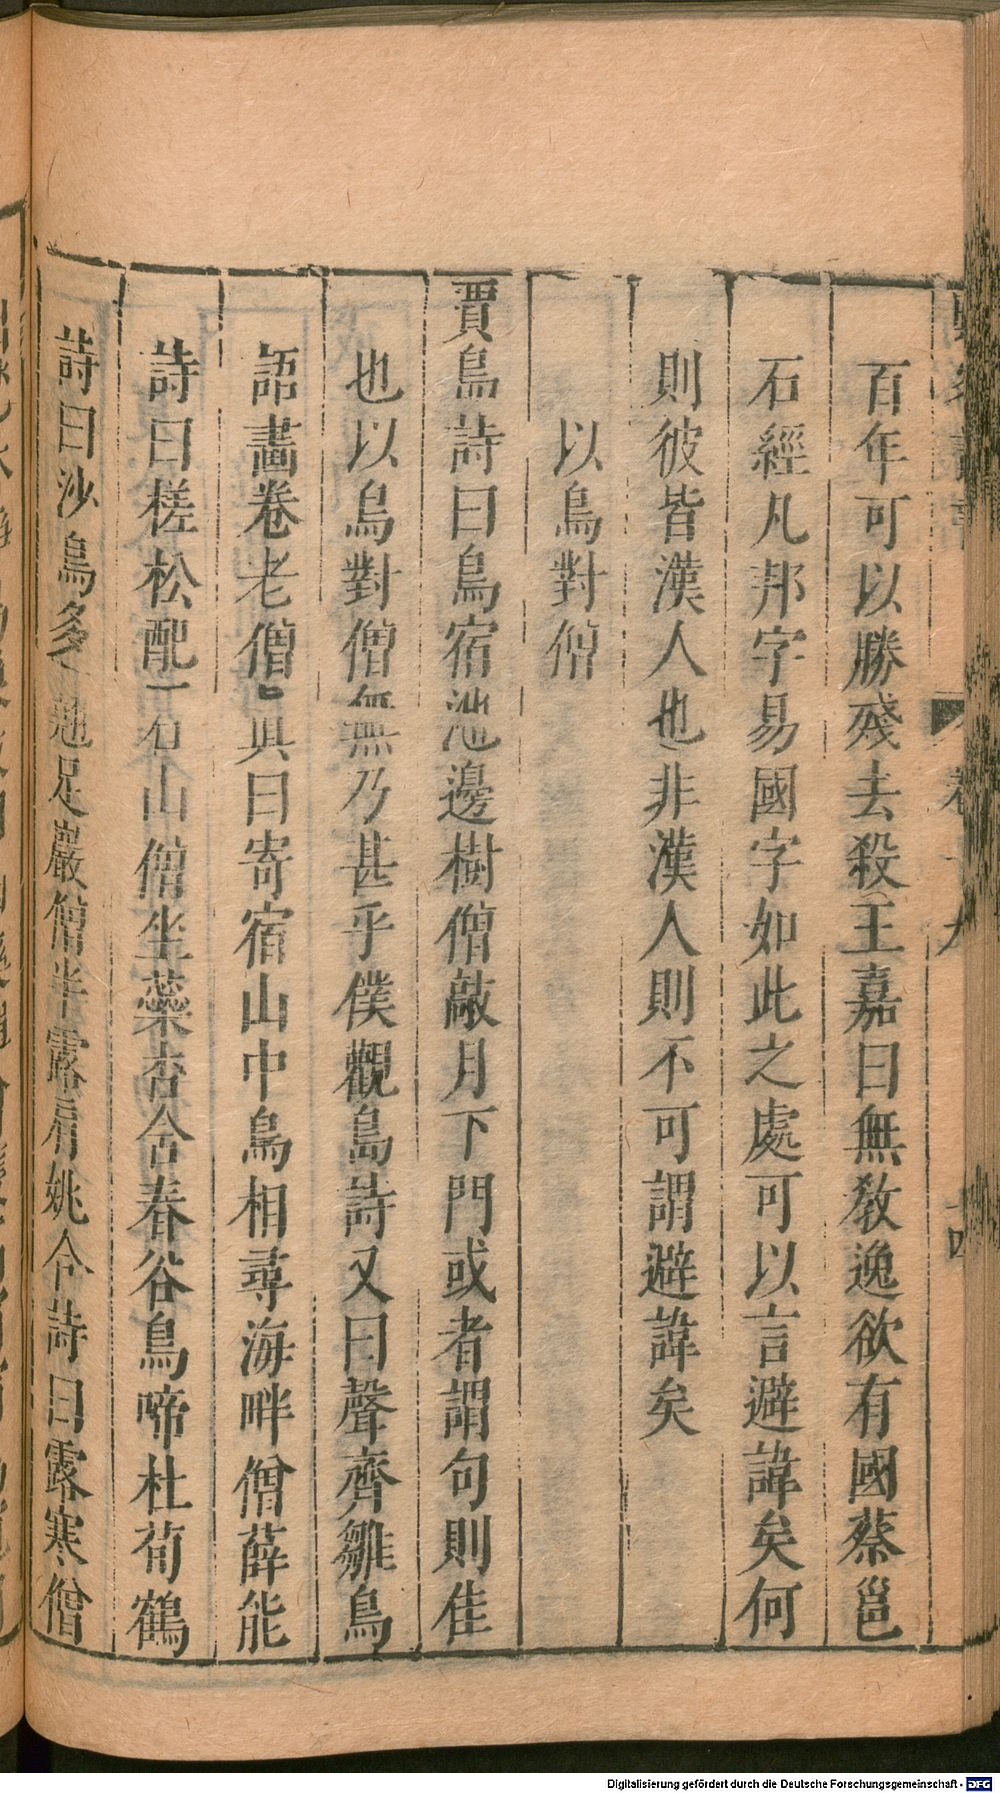 百年可以勝殘去殺王嘉曰無教逸欲有國蔡邕
石經凡邦字易國字如此之處可以言避諱矣何
則彼皆漢人也非漢人則不可謂避諱矣
以鳥對僧
賈島詩曰鳥宿池邊樹僧敲月下門或者謂句則佳
也以鳥對僧無乃甚乎僕觀島詩又曰聲齊雛鳥
語畫卷老僧真曰寄宿山中鳥相尋海畔僧薛能
詩曰槎松配石山僧坐蘂杏含春谷鳥啼杜荀鶴
詩曰沙鳥多翹足巖僧半露肩姚合詩曰露寒僧
卷十九
十四
Digitalisierung gefördert durch die Deutsche Forschungsgemeinschaft - DFG